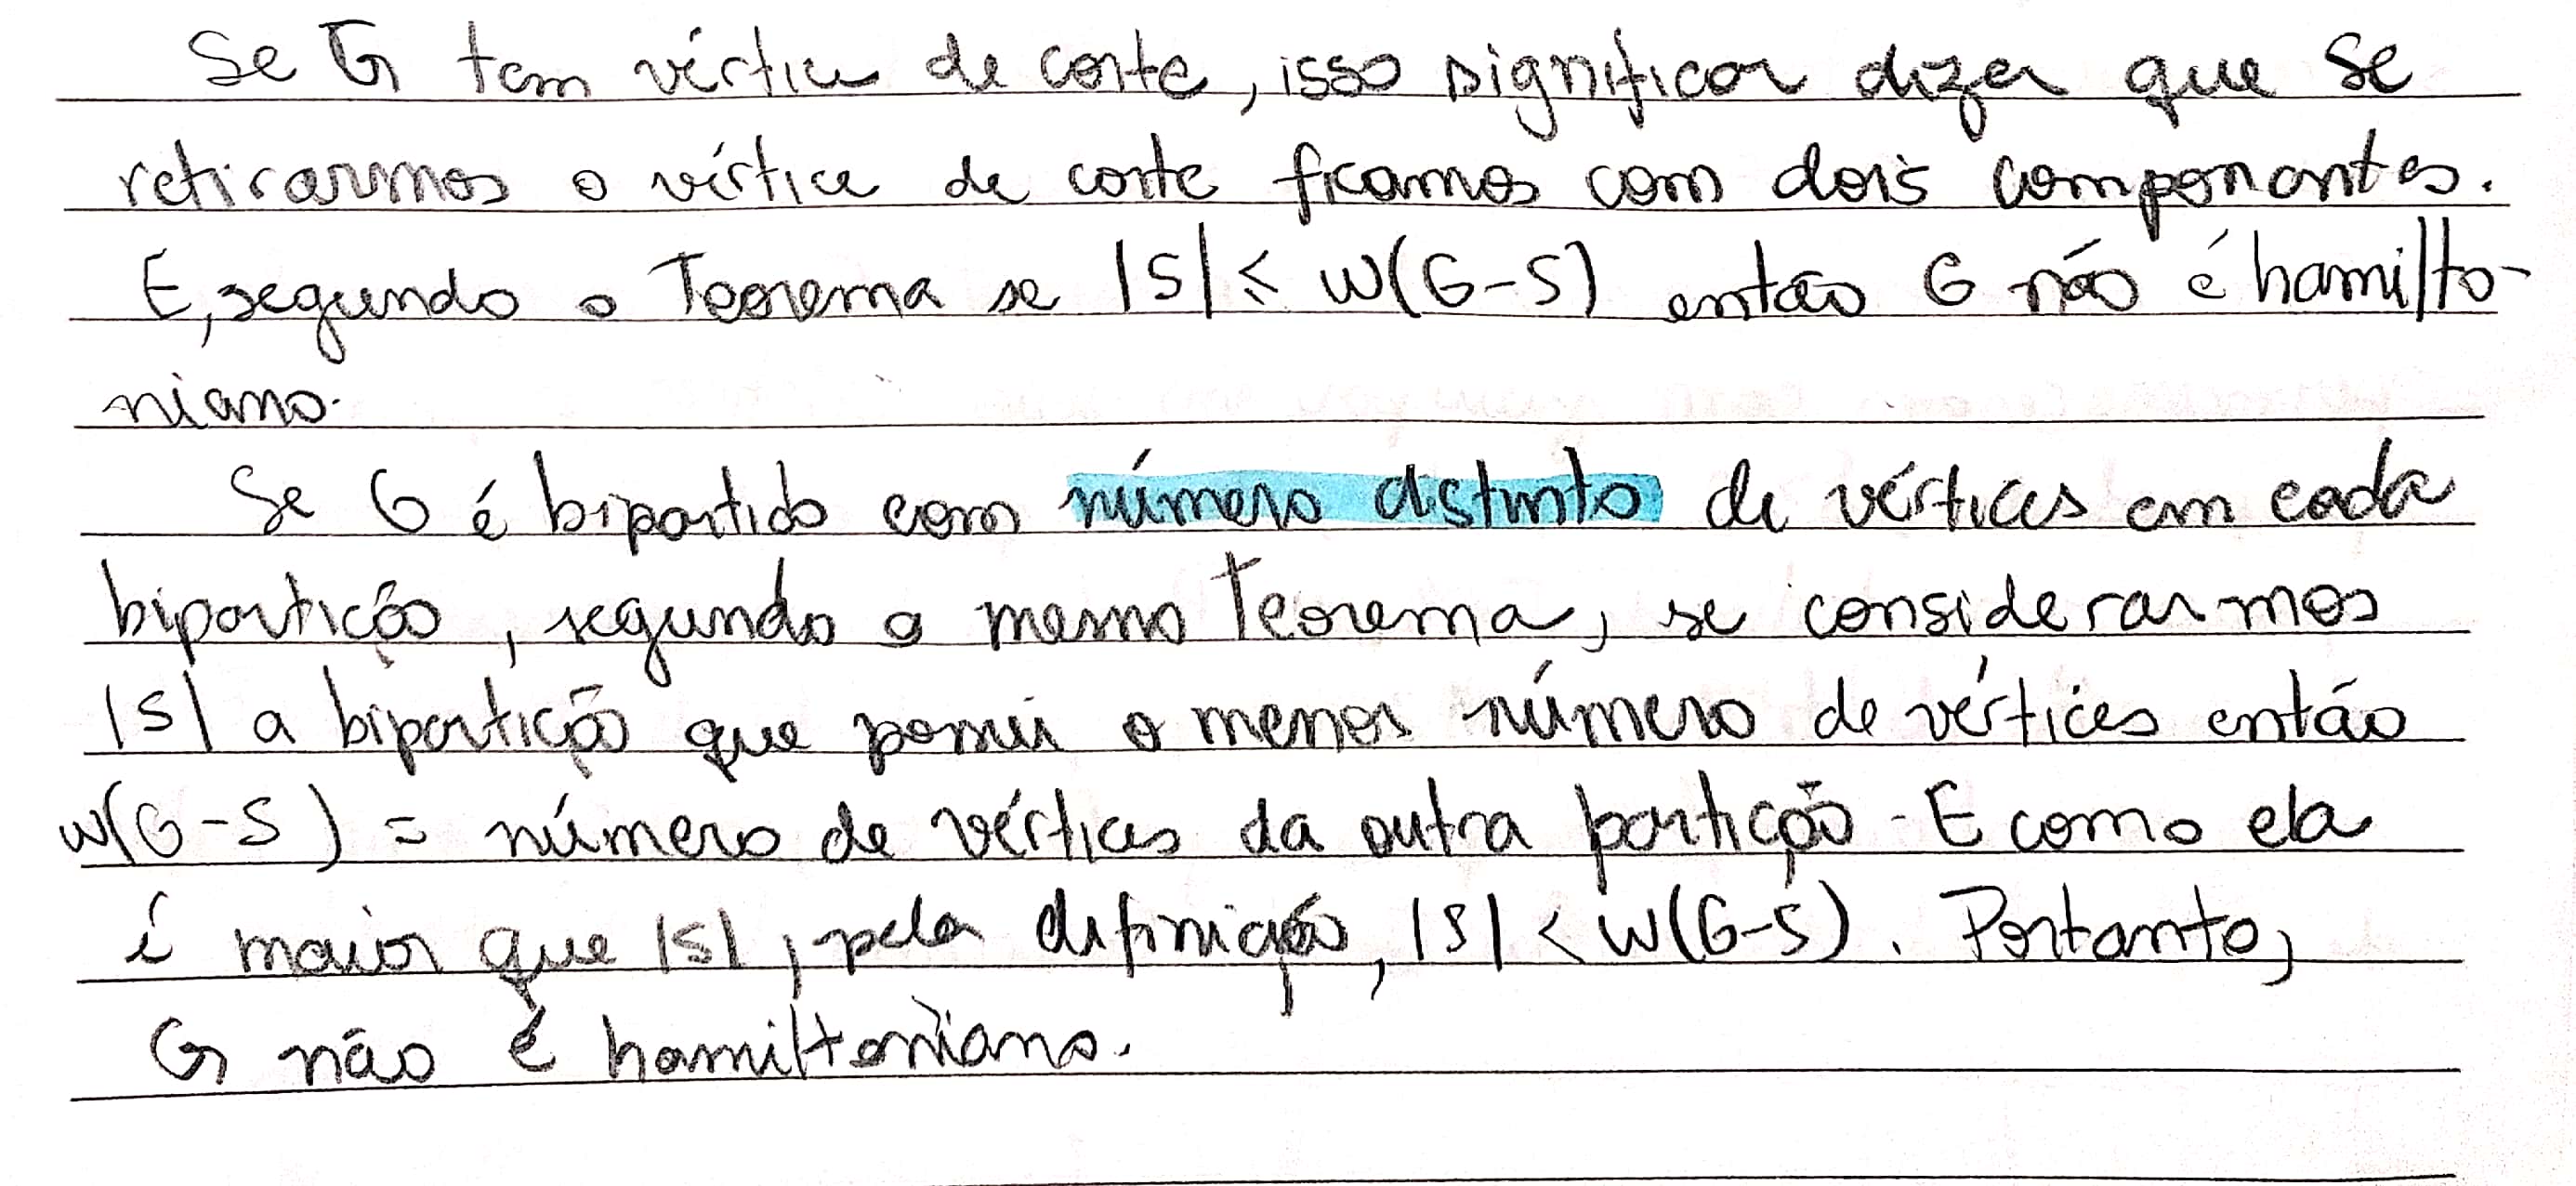 Se G tem vértice de corte, isso significa dizer que se
retirarmos o vértice de corte ficamos com dois componentes.
E, segundo o Teorema se |S| ≤ w(G-S) então G não é hamilto-
niano.
Se G é bipartido com número distinto de vértices em cada
bipartição, segundo o mesmo Teorema, se considerarmos
|S| a bipartição que possui o menor número de vértices então
w(G-S) = número de vértices da outra partição. E como ela
é maior que |S|, pela definição, |S| < w(G-S). Portanto,
G não é hamiltoniano.